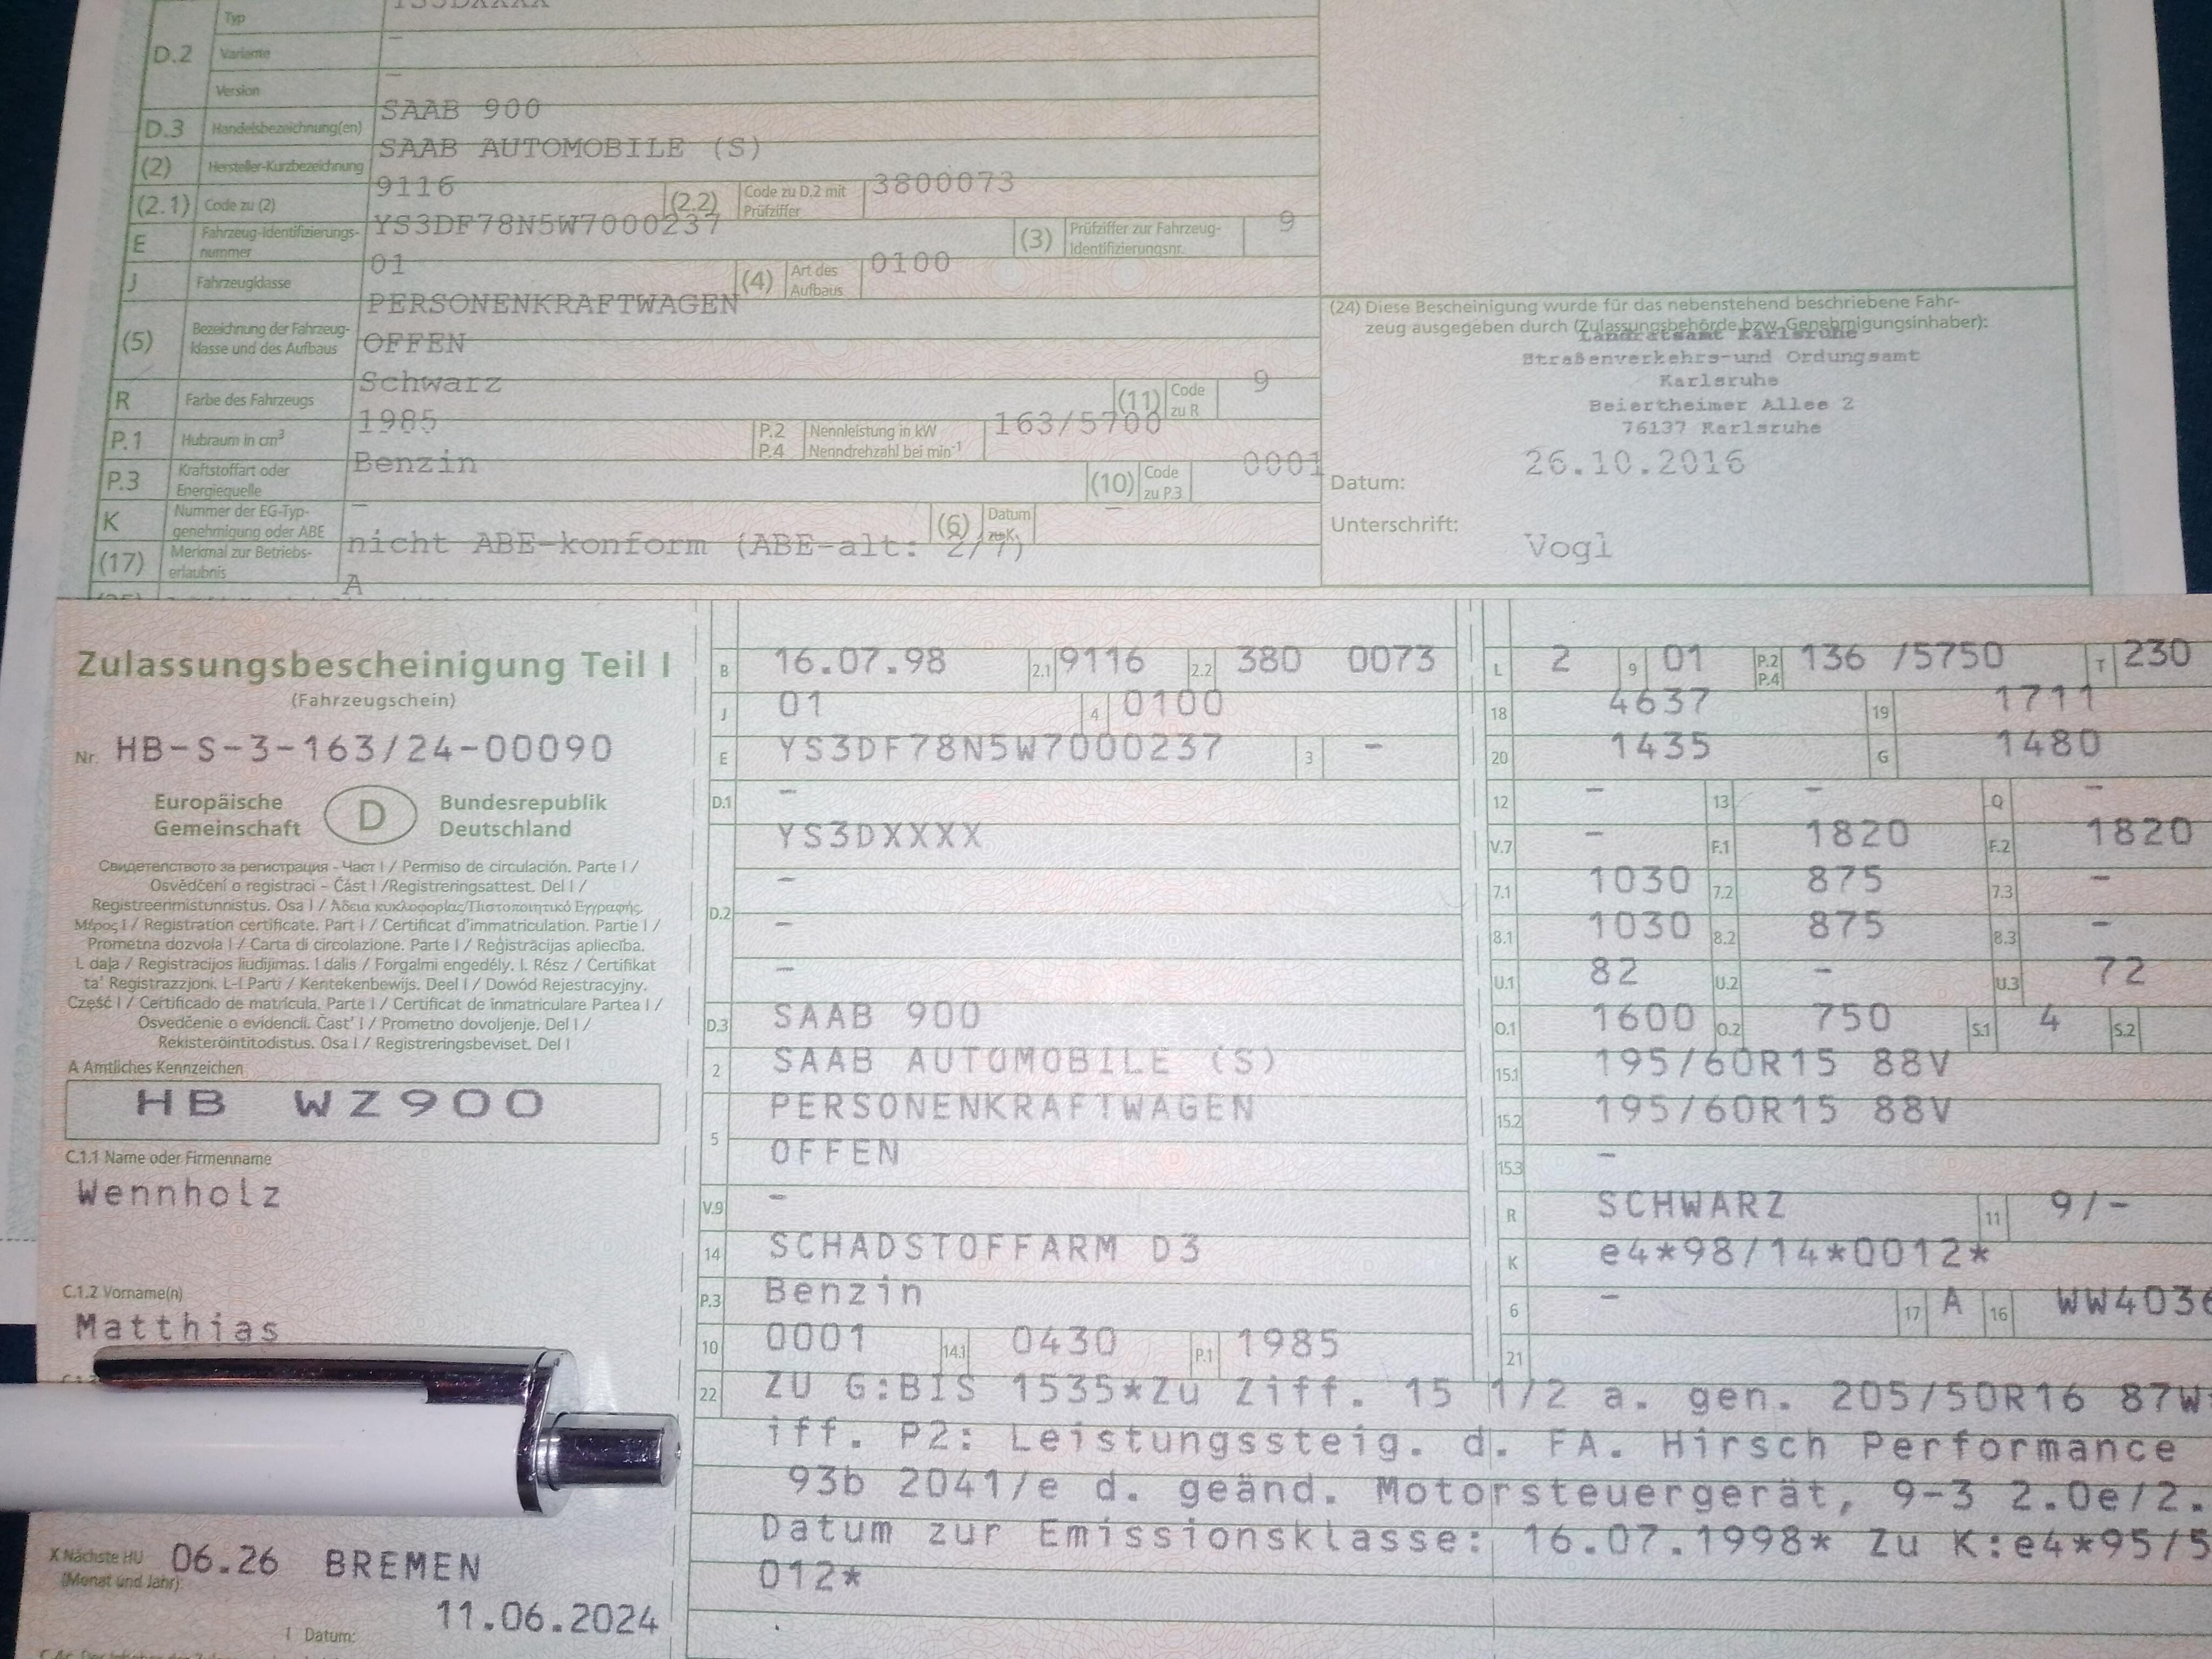 Typ
D.2 Variante –
Version –
D.3 Handelsbezeichnung(en) SAAB 900
(2) Hersteller-Kurzbezeichnung SAAB AUTOMOBILE (S)
(2.1) Code zu (2) 9116 (2.2) Code zu D.2 mit Prüfziffer 3800073
E Fahrzeug-Identifizierungs-nummer YS3DF78N5W7000237 (3) Prüfziffer zur Fahrzeug-Identifizierungsnr. 9
J Fahrzeugklasse 01 (4) Art des Aufbaus 0100
(5) Bezeichnung der Fahrzeug-klasse und des Aufbaus PERSONENKRAFTWAGEN
OFFEN
R Farbe des Fahrzeugs Schwarz (11) Code zu R 9
P.1 Hubraum in cm³ 1985 P.2 P.4 Nennleistung in kW Nenndrehzahl bei min⁻¹ 163/5700
P.3 Kraftstoffart oder Energiequelle Benzin (10) Code zu P.3 0001
K Nummer der EG-Typ-genehmigung oder ABE – (6) Datum zu K –
(17) Merkmal zur Betriebs-erlaubnis nicht ABE-konform (ABE-alt: 2/7)
A
(24) Diese Bescheinigung wurde für das nebenstehend beschriebene Fahr-
zeug ausgegeben durch (Zulassungsbehörde bzw. Genehmigungsinhaber):
Landratsamt Karlsruhe
Straßenverkehrs-und Ordungsamt
Karlsruhe
Beiertheimer Allee 2
76137 Karlsruhe
Datum: 26.10.2016
Unterschrift: Vogl
Zulassungsbescheinigung Teil I
(Fahrzeugschein)
Nr. HB-S-3-163/24-00090
Europäische Gemeinschaft D Bundesrepublik Deutschland
Свидетелство за регистрация - Част I / Permiso de circulación. Parte I /
Osvědčení o registraci – Část I /Registreringsattest. Del I /
Registreerimistunnistus. Osa I / Άδεια κυκλοφορίας/Πιστοποιητικό Εγγραφής.
Μέρος I / Registration certificate. Part I / Certificat d'immatriculation. Partie I /
Prometna dozvola I / Carta di circolazione. Parte I / Reģistrācijas apliecība.
I. daļa / Registracijos liudijimas. I dalis / Forgalmi engedély. I. Rész / Ċertifikat
ta' Reġistrazzjoni. L-I Parti / Kentekenbewijs. Deel I / Dowód Rejestracyjny.
Część I / Certificado de matrícula. Parte I / Certificat de înmatriculare Partea I /
Osvedčenie o evidencii. Časť I / Prometno dovoljenje. Del I /
Rekisteröintitodistus. Osa I / Registreringsbeviset. Del I
A Amtliches Kennzeichen
HB WZ900
C.1.1 Name oder Firmenname
Wennholz
C.1.2 Vorname(n)
Matthias
X Nächste HU (Monat und Jahr) 06.26 BREMEN
I Datum: 11.06.2024
B 16.07.98 2.1 9116 2.2 380 0073
J 01 4 0100
E YS3DF78N5W7000237 3 –
D.1 –
D.2 YS3DXXXX
–
–
–
D.3 SAAB 900
2 SAAB AUTOMOBILE (S)
5 PERSONENKRAFTWAGEN
OFFEN
V.9 –
14 SCHADSTOFFARM D3
P.3 Benzin
10 0001 14.1 0430 P.1 1985
L 2 9 01 P.2 P.4 136 /5750 T 230
18 4637 19 1711
20 1435 G 1480
12 – 13 – Q –
V.7 – F.1 1820 F.2 1820
7.1 1030 7.2 875 7.3 –
8.1 1030 8.2 875 8.3 –
U.1 82 U.2 – U.3 72
O.1 1600 O.2 750 S.1 4 S.2
15.1 195/60R15 88V
15.2 195/60R15 88V
15.3 –
R SCHWARZ 11 9/–
K e4*98/14*0012*
6 – 17 A 16 WW4036
21
22 ZU G:BIS 1535*Zu Ziff. 15 1/2 a. gen. 205/50R16 87W
iff. P2: Leistungssteig. d. FA. Hirsch Performance
93b 2041/e d. geänd. Motorsteuergerät, 9-3 2.0e/2.
Datum zur Emissionsklasse: 16.07.1998* Zu K:e4*95/5
012*